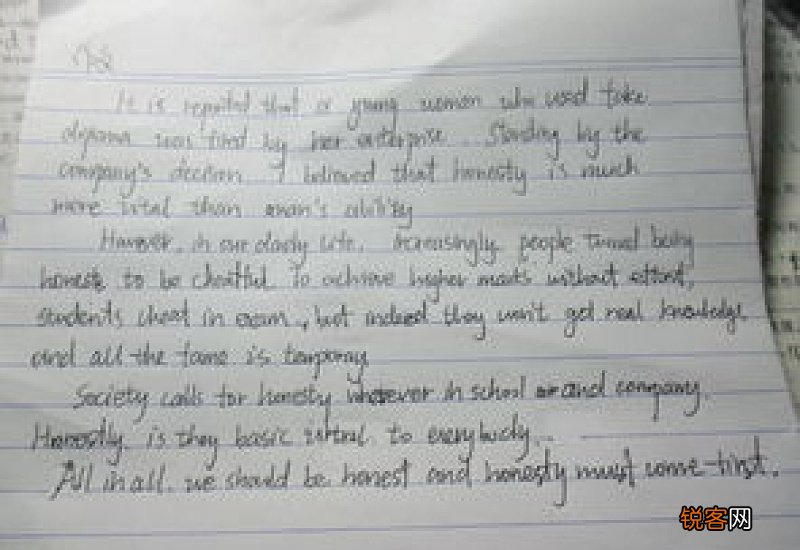 It is reported that a young woman who used fake
diploma was fired by her enterprise. Standing by the
company's decision I believed that honesty is much
more vital than man's ability
However, in our daily life, increasingly people turned being
honest to be cheatful. To achieve higher marks without effort,
students cheat in exam, but indeed they won't get real knowledge
and all the fame is temporary
Society calls for honesty whatever in school and company.
Honestly is they basic to everybody.
All in all, we should be honest and honesty must come first.
锐客网